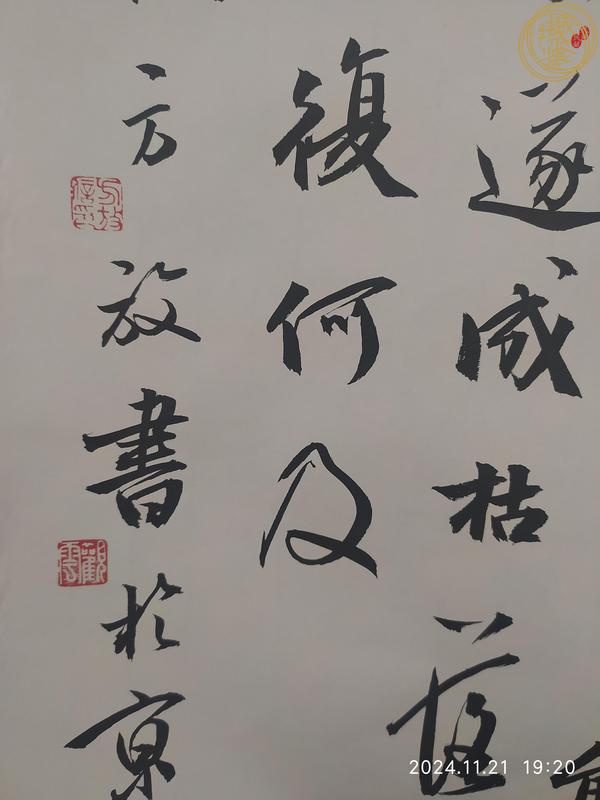 遂成枯落
復何及
方放書於京
2024.11.21 19:20